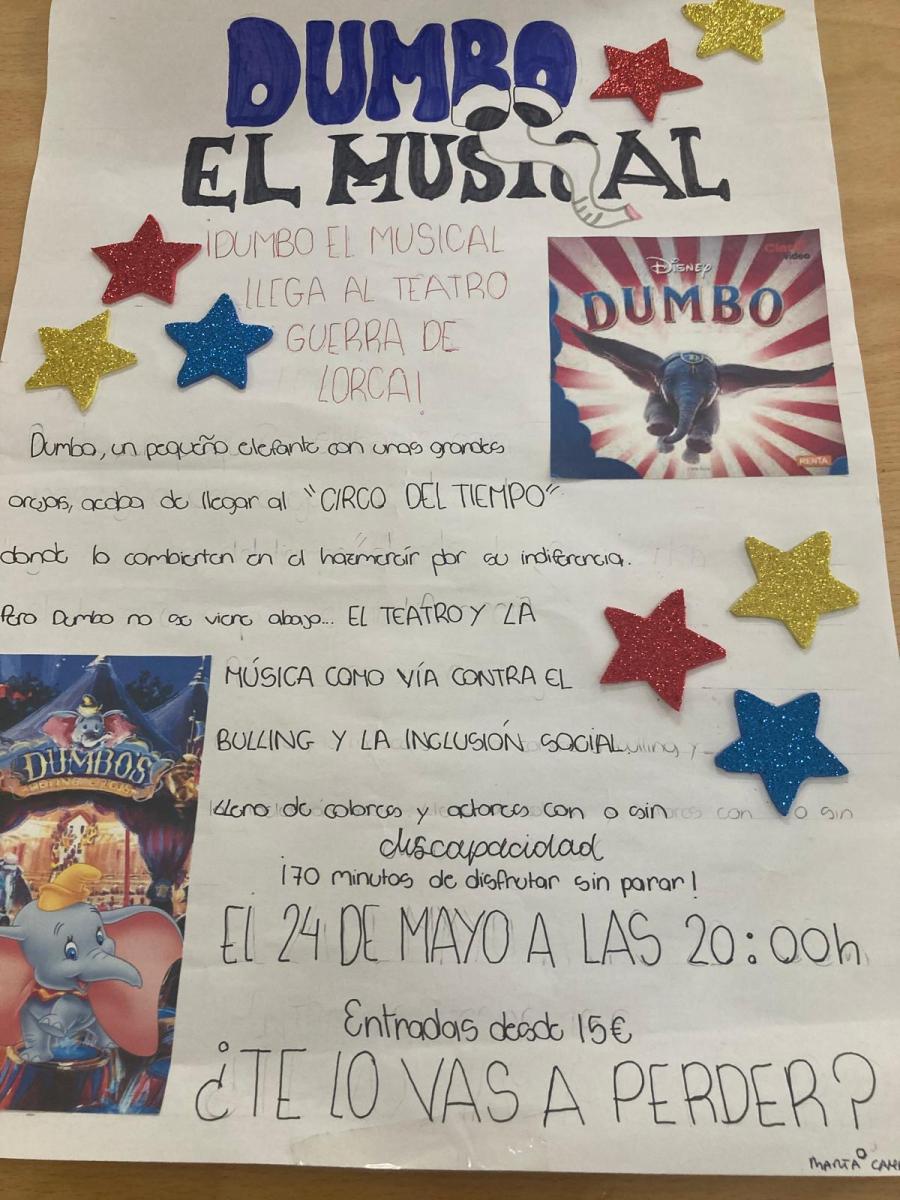 DUMBO
EL MUSICAL
¡DUMBO EL MUSICAL
LLEGA AL TEATRO
GUERRA DE
LORCA!
Disney
DUMBO
Claro
video
RENTA
Dumbo, un pequeño elefante con unas grandes
orejas, acaba de llegar al "CIRCO DEL TIEMPO"
donde lo combierten en el hazmerreír por su indiferencia.
Pero Dumbo no se viene abajo... EL TEATRO Y LA
MÚSICA COMO VÍA CONTRA EL
BULLING Y LA INCLUSIÓN SOCIAL
Lleno de colores y actores con o sin
discapacidad
¡70 minutos de disfrutar sin parar!
El 24 DE MAYO A LAS 20:00h
Entradas desde 15€
¿TE LO VAS A PERDER?
DUMBO'S
MARTA